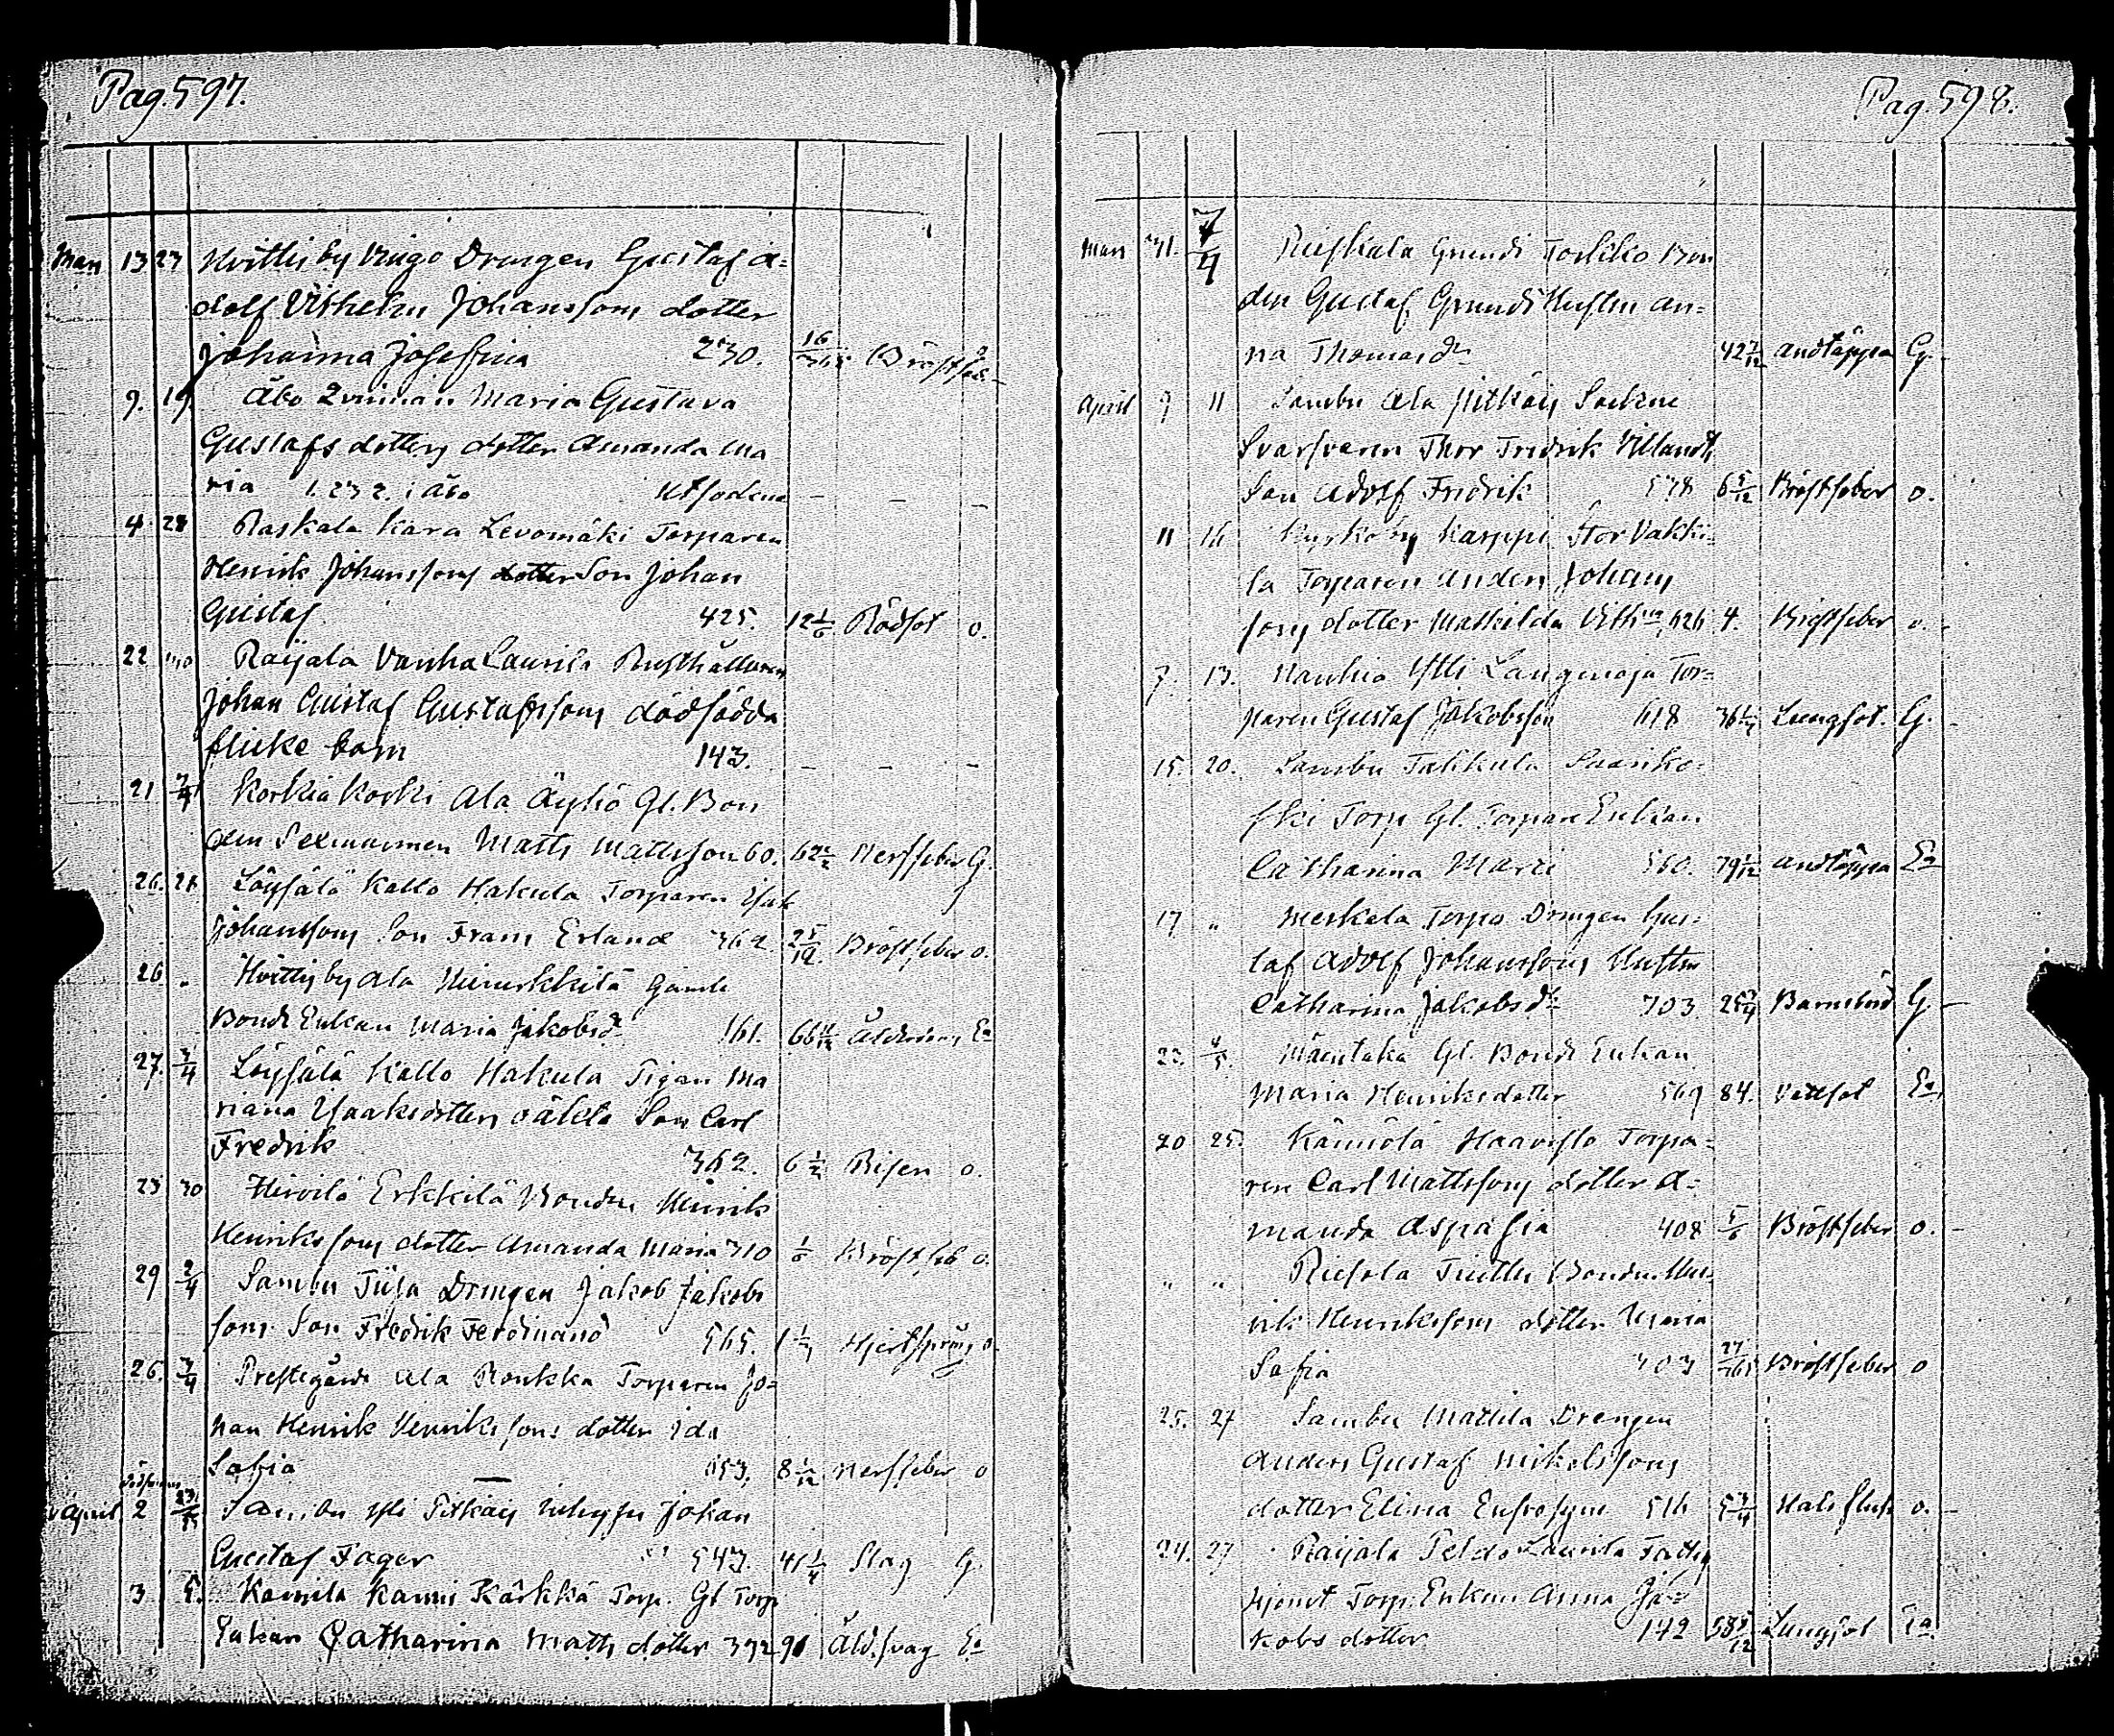 Pag. 597.
Mars 13 23 Hvittisby Ringo Drengen Gustaf A=
dolf Vilhelm Johanssons dotter
Johanna Josefina 230. 16/365 Bröstfeb. o.
9. 19 Åbo Qvinnan Maria Gustava
Gustafsdotters dotter Amanda Ma
ria i Åbo
4 28 Raskala Kara Levomäki Torparen
Henrik Johanssons dotter Son Johan
Gustaf 425. 12 1/6 Rödsot o.
22 30 Raijala Vanha Laurila Rusthållaren
Johan Gustaf Gustafssons dödfödda
flicke barn 143. – – –
21 7/4 Korkiakoski Ala Äyhö Gl. Bon
den Matts Mattsson 60. Nerffeber G.
26. 28 Löysälä Kallo Hakula Torparen Isak
Johanssons Son Frans Erland 362 2 5/12 Bröstfeber o.
26 „ Hvittisby Ala Gamle
Bonde Enkan Maria Jakobsdr 161. 66 Ålderdoms Ea
27. 7/4 Löysälä Kallo Hakula Pigan Ma
riana Isaksdotters oäkta Son Carl
Fredrik 362. 6 1/2 Risen o.
23 30 Hirvilä Erkkilä Bonden Henrik
Henrikssons dotter Amanda Maria 310 1/6 Bröstfeb o.
29 2/4 Sambu Tüja Drengen Jakob Jakobs
sons Son Fredrik Ferdinand 565. Hjertsprång o.
26. 7/4 Prestegårds Ala Ronkka Torparen Jo=
han Henrik Henrikssons dotter Ida
Safia 653. 8 1/12 Nerffeber o
April 2 Yli Pitkäis Inhyses Johan
Gustaf Fager 543. 41 1/4 Slag G.
3 5. Kamila Karkkä Torp. Gl Torp
Enkan Catharina Matts dotter 372 91 Åld.svag Ea
Pag. 598.
Mars 31. 7/4 Rieskala Grundi Bon
den Gustaf Grundi Hustru An=
na Thomasdr 42 7/12 Andtäppa G.
April 9 11 Sambu Ala Pitkäis Sockne
Svarfveren Thor Fridrik Villandts
Son Adolf Fridrik 538 6 5/12 Bröstfeber o.
11 16 Kyrkoby Karppi Stor Vakki=
la Torparen Anders Johans
sons dotter Mathilda Vilhma 626 4. Bröstfeber o.
7. 13. Nanhia Ylli Langinoja Tor=
paren Gustaf Jakobsson 618 Lungsot. G.
15. 20. Sambu Takkula Saariko=
ski Torp Gl. Torpare Enkan
Catharina Marci 560. 79 1/12 Andtäppa Ea
17 „ Meskala Torpo Drengen Gus=
taf Adolf Johanssons Hustru
Catharina Jakobsdr 703. 25 3/4 Barnsbörd G.
23. 4/5. Mäentaka Gl. Bonde Enkan
Maria Henriksdotter 569 84. Vattsot Ea
20 25. Känniölä Haavisto Torpa=
ren Carl Mattssons dotter A=
manda Aspasia 408 5/6 Bröstfeber o.
„ „ Riesola Bonden Hen=
rik Henrikssons dotter Maria
Safia 303 Bröstfeber o
25. 27 Sambu Mattila Drengen
Anders Gustaf Mikelssons
dotter Elina Eufrosyne 516 5 3/4 Hals fluss o.
24. 27 Raijala Peldo Laurila Fattig
hjonet Torp. Enkan Anna Ja=
kobs dotter 142 58 5/12 Lungsot Ea.